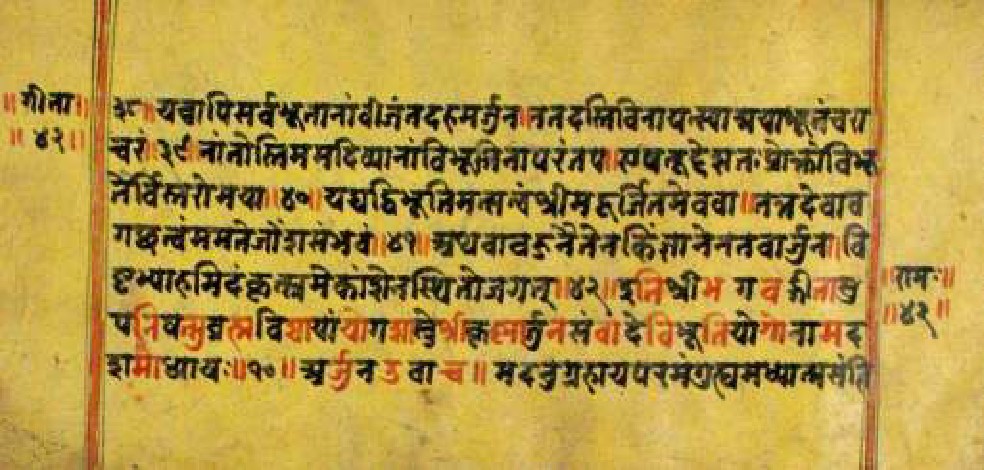 ॥गीता॥
॥४२॥
३८॥ यच्चापिसर्वभूतानांवीजंतदहमर्जुन॥नतदस्तिविनायत्स्यान्मयाभूतंचरा
चरं॥३९॥नांतोस्तिममदिव्यानांविभूतीनांपरंतप॥एषतूद्देसतःप्रोक्तोविभू
तेर्विस्तरोमया॥४०॥यद्यद्विभूतिमत्सत्वंश्रीमदूर्जितमेववा॥तत्तदेवाव
गछत्वंममतेजोंशसंभवं॥४१॥अथवावहुनैतेनकिंज्ञानेनतवार्जुन॥वि
ष्टभ्याहमिदंकृत्स्नमेकांशेनस्थितोजगत्॥४२॥इतिश्रीभगवद्गीतासु
पनिषत्सुव्रह्मविद्यायांयोगशास्त्रेश्रीकृष्णार्जुनसंवादेविभूतियोगोनामद
शमोध्यायः॥१०॥अर्जुनउवाच॥मदनुग्रहायपरमंगुह्यमध्यात्मसंज्ञि
॥रामः॥
॥४२॥